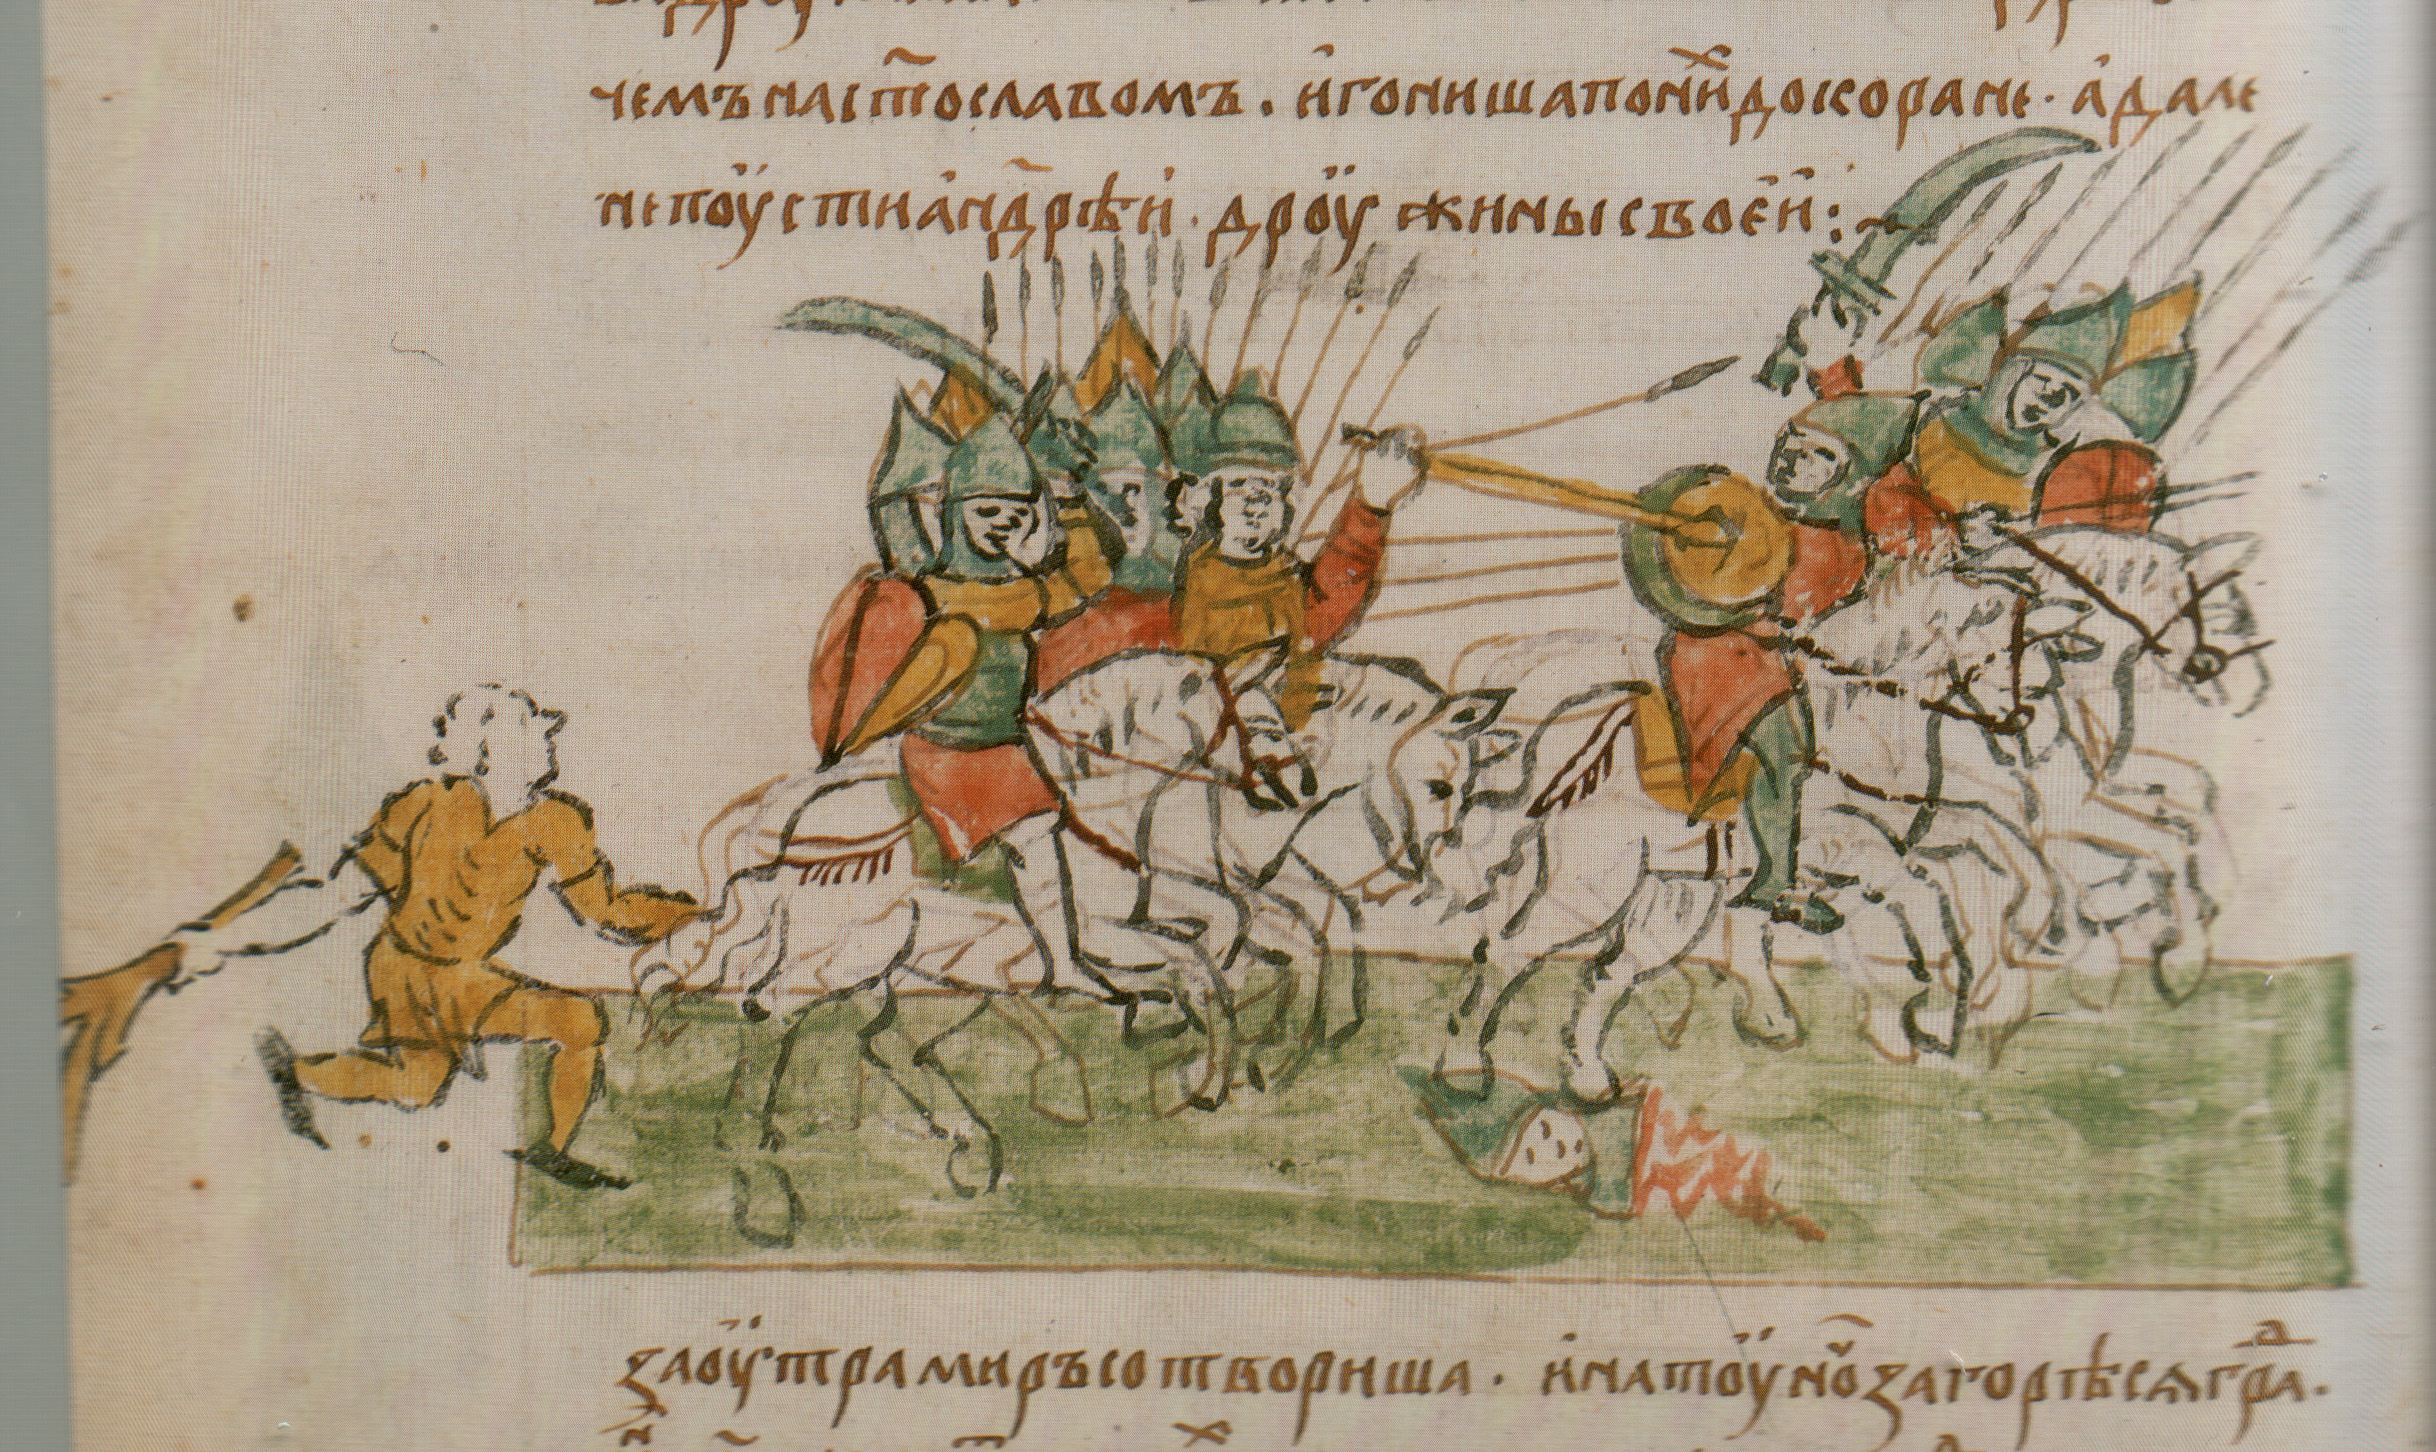 чемъ на ст҃ославомъ. и гониша по ни^х до корание. а дале
не поусти андрѣи. дроужины своеи:~
заоутра миръ сотвориша. и на тоу нощ загорѣся гра^д.